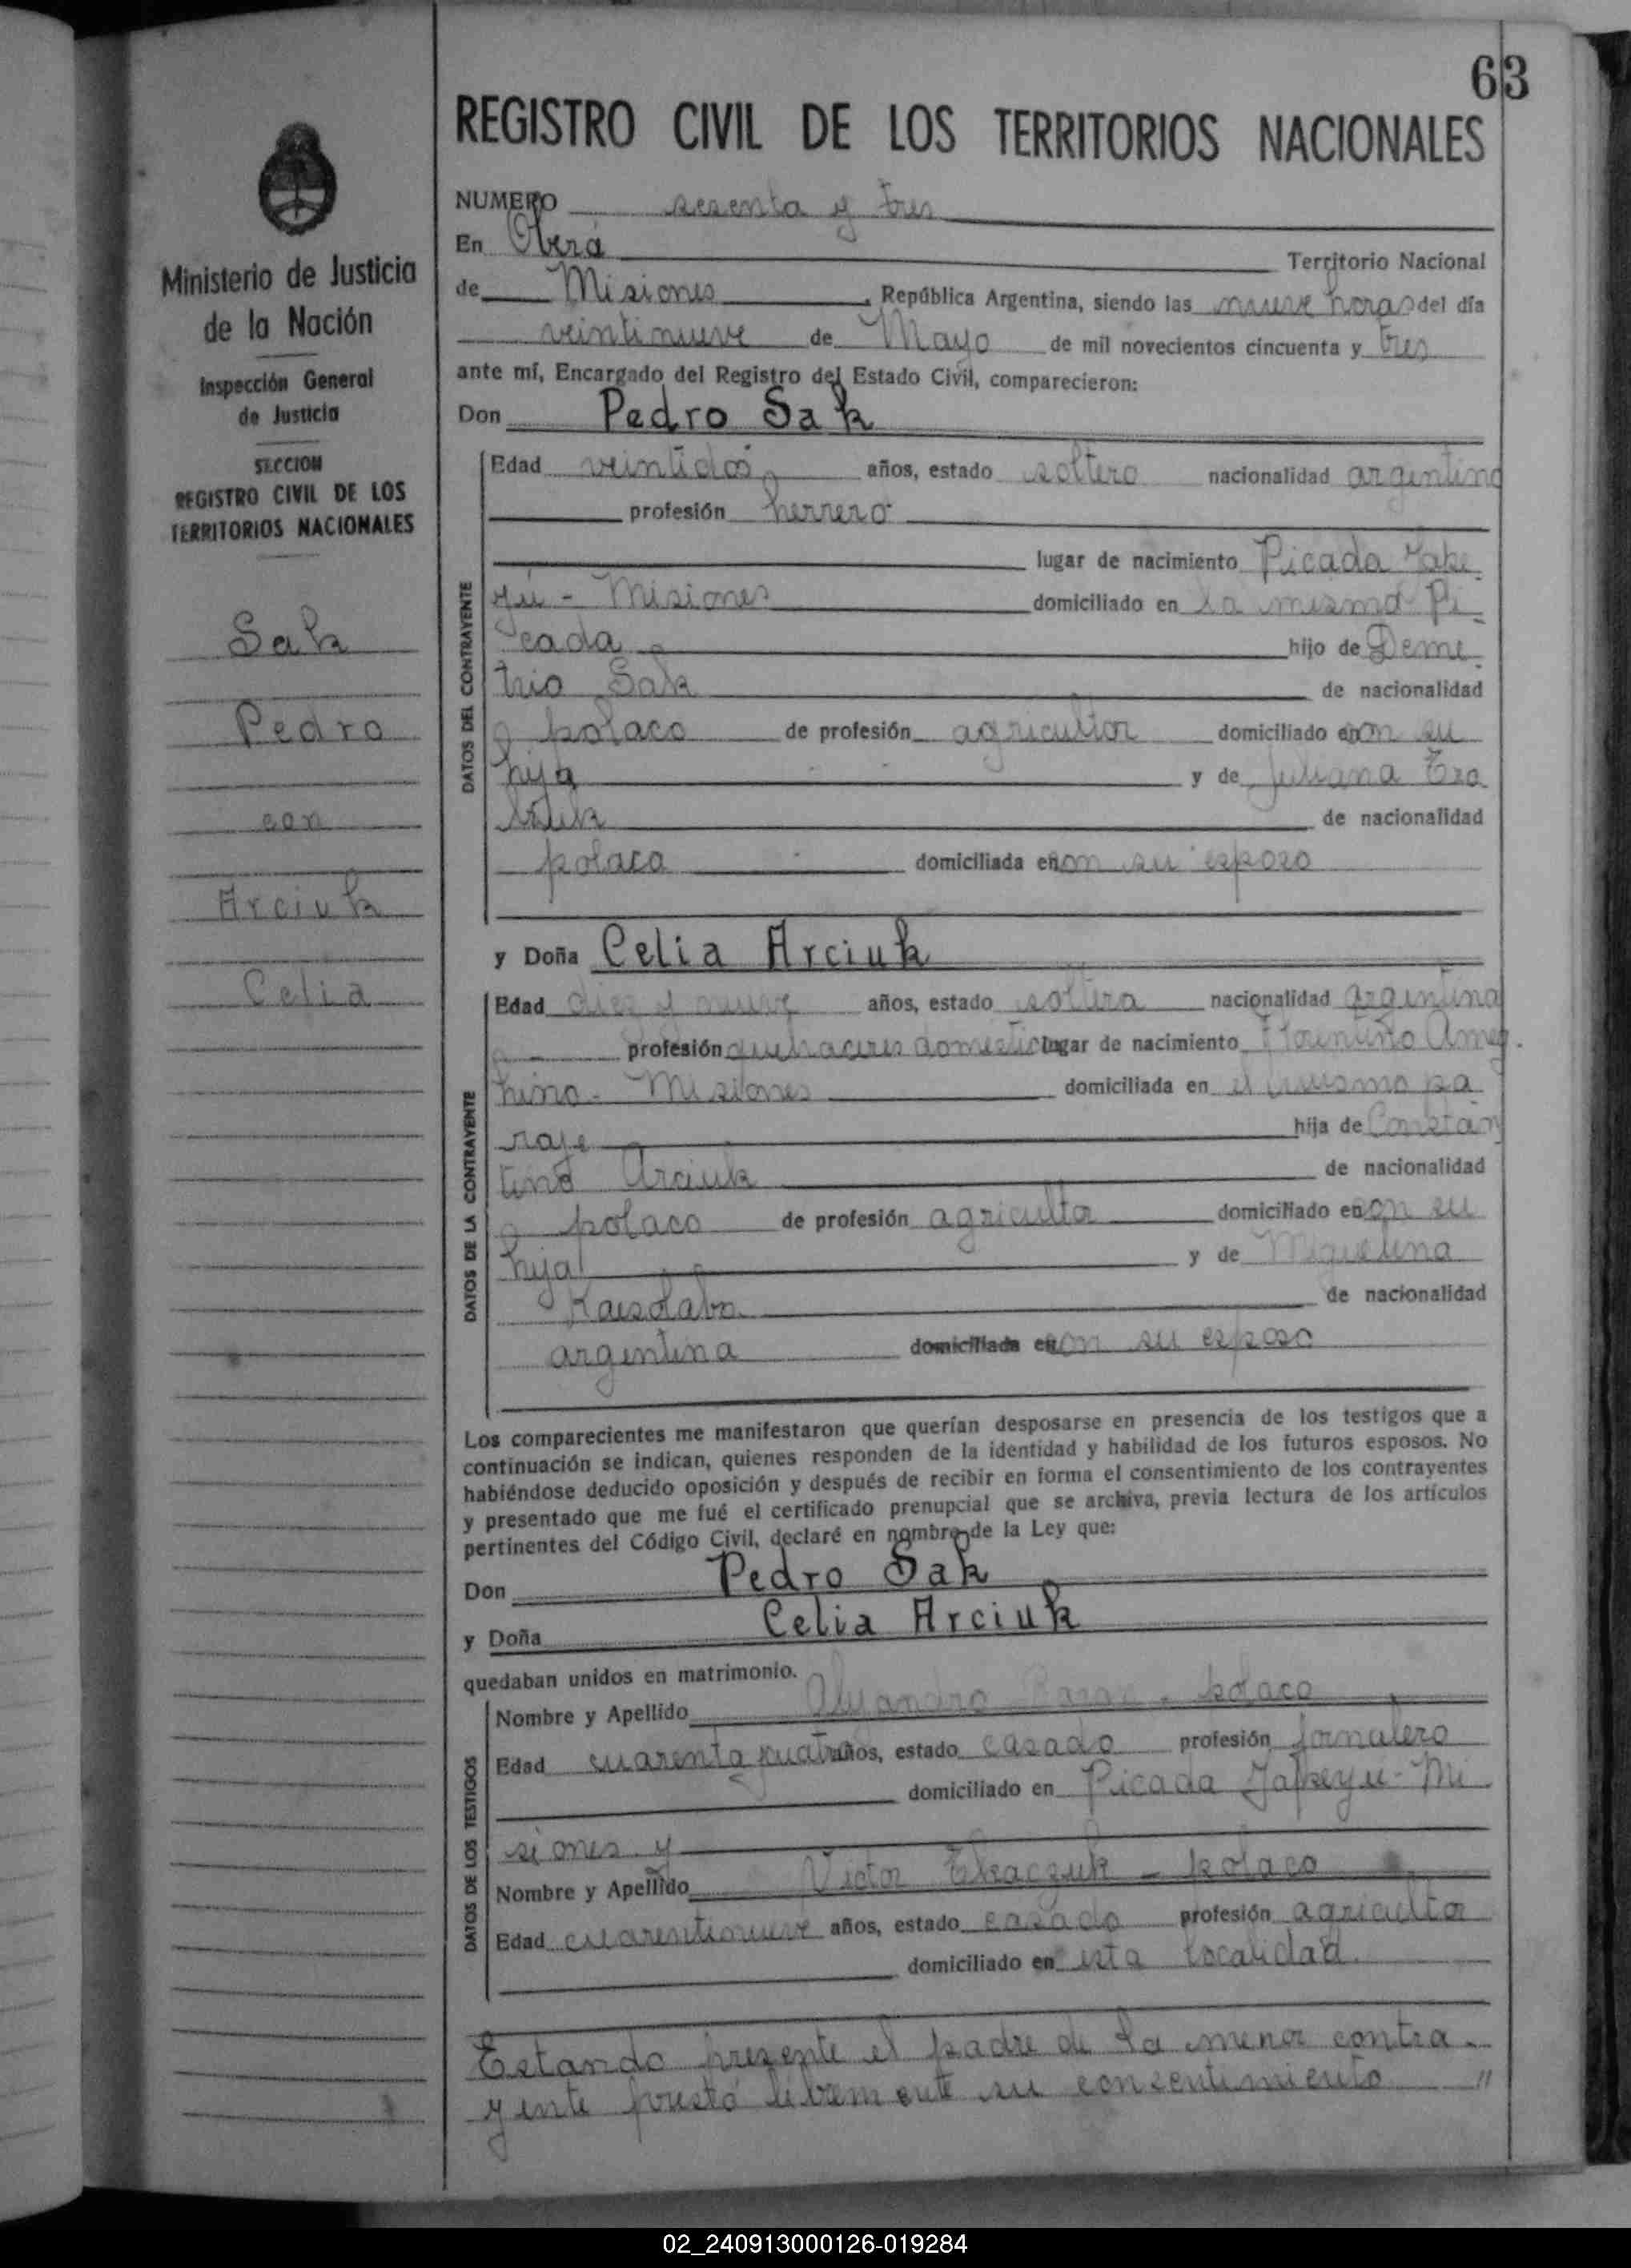 63
REGISTRO CIVIL DE LOS TERRITORIOS NACIONALES
Ministerio de Justicia
de la Nación
Inspección General
de Justicia
SECCION
REGISTRO CIVIL DE LOS
TERRITORIOS NACIONALES
Sak
Pedro
con
Arciuk
Celia
NUMERO sesenta y tres
En Oberá Territorio Nacional
de Misiones, República Argentina, siendo las nueve horas del día
veintinueve de Mayo de mil novecientos cincuenta y tres
ante mí, Encargado del Registro del Estado Civil, comparecieron:
Don Pedro Sak
DATOS DEL CONTRAYENTE
Edad veintidos años, estado soltero nacionalidad argentino
profesión herrero
lugar de nacimiento Picada Yape
yú - Misiones domiciliado en la misma Pi
cada hijo de Deme
trio Sak de nacionalidad
polaco de profesión agricultor domiciliado en con su
hija y de Juliana
de nacionalidad
polaca domiciliada en con su esposo
y Doña Celia Arciuk
DATOS DE LA CONTRAYENTE
Edad diez y nueve años, estado soltera nacionalidad argentina
profesión quehaceres domesticos lugar de nacimiento Florentino Ameg
hino - Misiones domiciliada en el mismo pa
raje hija de Constan
tino Arciuk de nacionalidad
polaco de profesión agricultor domiciliado en con su
hija y de Miguelina
de nacionalidad
argentina domiciliada en con su esposo
Los comparecientes me manifestaron que querían desposarse en presencia de los testigos que a
continuación se indican, quienes responden de la identidad y habilidad de los futuros esposos. No
habiéndose deducido oposición y después de recibir en forma el consentimiento de los contrayentes
y presentado que me fué el certificado prenupcial que se archiva, previa lectura de los artículos
pertinentes del Código Civil, declaré en nombre de la Ley que:
Don Pedro Sak
y Doña Celia Arciuk
quedaban unidos en matrimonio.
DATOS DE LOS TESTIGOS
Nombre y Apellido Alejandro - polaco
Edad cuarenta y cuatro años, estado casado profesión jornalero
domiciliado en Picada Yapeyu - Mi
siones y
Nombre y Apellido Victor Tkaczuk - polaco
Edad cuarentinueve años, estado casado profesión agricultor
domiciliado en esta localidad.
Estando presente el padre de la menor contra-
yente prestó libremente su consentimiento "
02_240913000126-019284